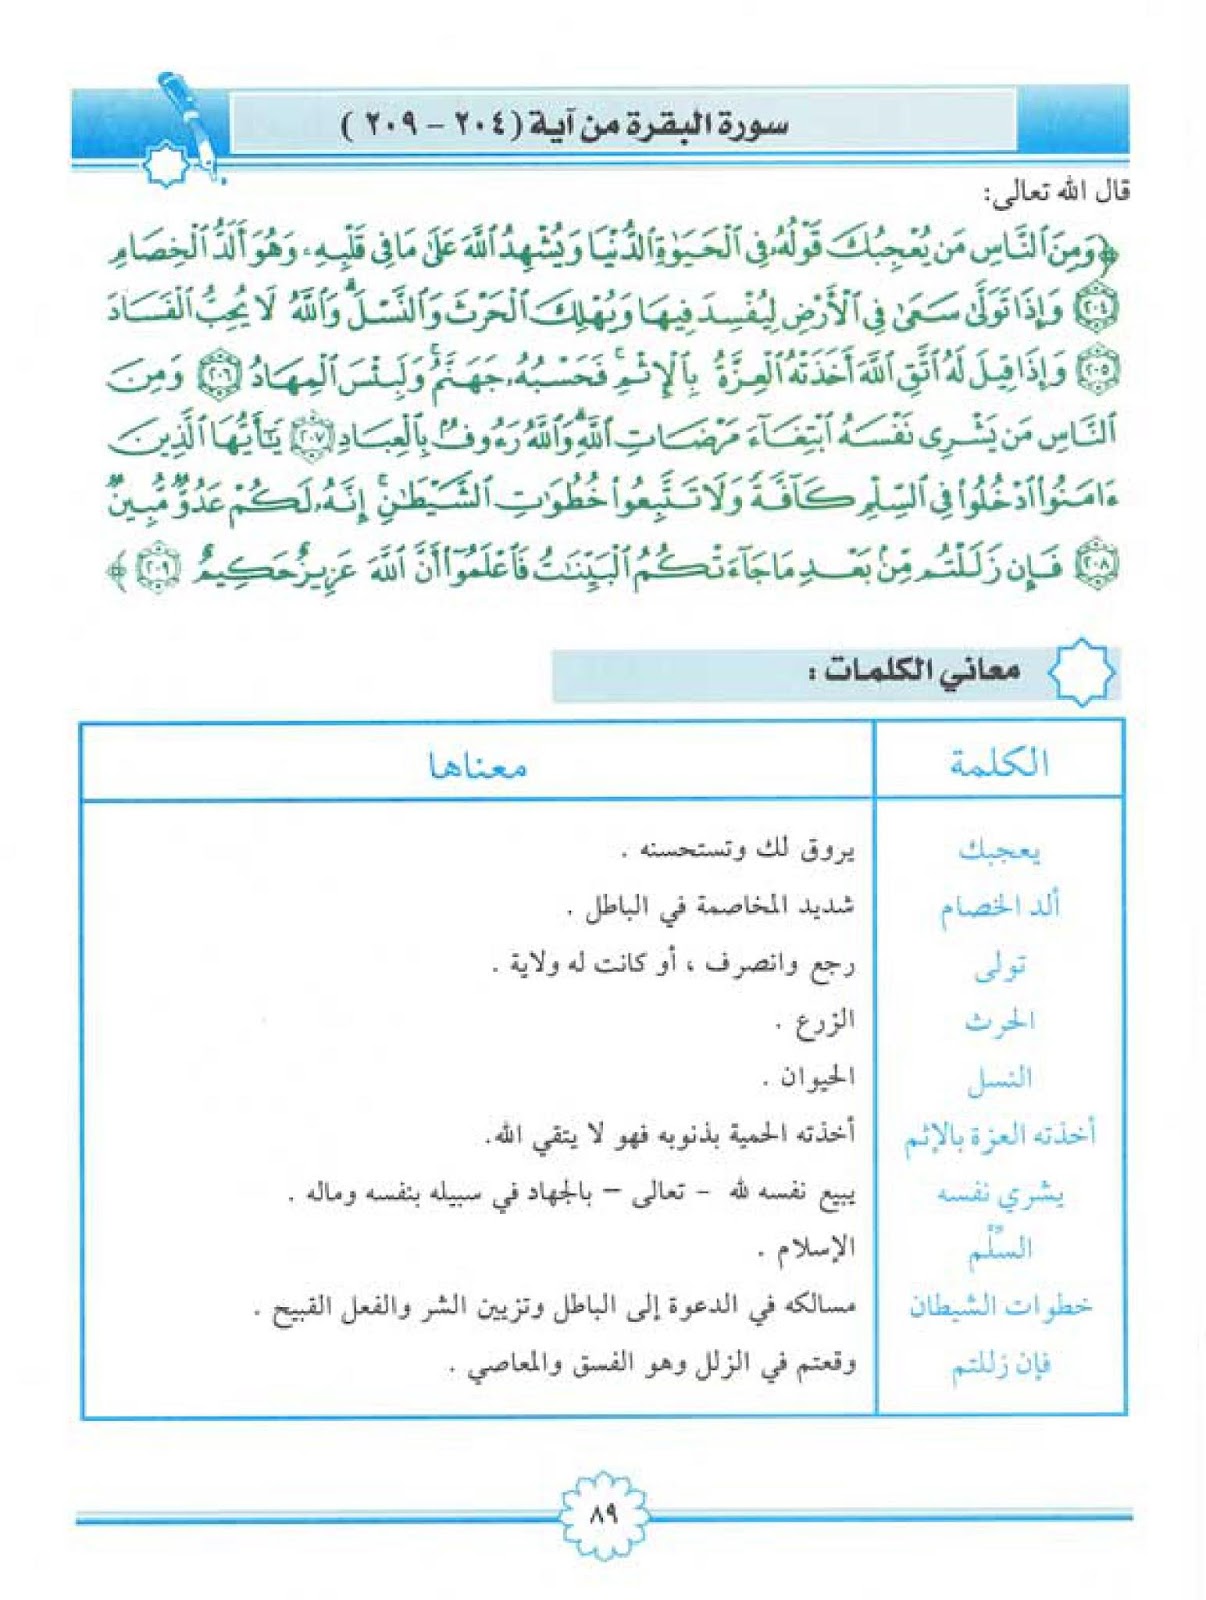 سورة البقرة من آية ( ٢٠٤ - ٢٠٩ )
قال الله تعالى:
﴿ وَمِنَ ٱلنَّاسِ مَن يُعْجِبُكَ قَوْلُهُۥ فِى ٱلْحَيَوٰةِ ٱلدُّنْيَا وَيُشْهِدُ ٱللَّهَ عَلَىٰ مَا فِى قَلْبِهِۦ وَهُوَ أَلَدُّ ٱلْخِصَامِ
٢٠٤ وَإِذَا تَوَلَّىٰ سَعَىٰ فِى ٱلْأَرْضِ لِيُفْسِدَ فِيهَا وَيُهْلِكَ ٱلْحَرْثَ وَٱلنَّسْلَ ۗ وَٱللَّهُ لَا يُحِبُّ ٱلْفَسَادَ
٢٠٥ وَإِذَا قِيلَ لَهُ ٱتَّقِ ٱللَّهَ أَخَذَتْهُ ٱلْعِزَّةُ بِٱلْإِثْمِ ۚ فَحَسْبُهُۥ جَهَنَّمُ ۚ وَلَبِئْسَ ٱلْمِهَادُ ٢٠٦ وَمِنَ
ٱلنَّاسِ مَن يَشْرِى نَفْسَهُ ٱبْتِغَآءَ مَرْضَاتِ ٱللَّهِ ۗ وَٱللَّهُ رَءُوفٌۢ بِٱلْعِبَادِ ٢٠٧ يَٰٓأَيُّهَا ٱلَّذِينَ
ءَامَنُوا۟ ٱدْخُلُوا۟ فِى ٱلسِّلْمِ كَآفَّةً وَلَا تَتَّبِعُوا۟ خُطُوَٰتِ ٱلشَّيْطَٰنِ ۚ إِنَّهُۥ لَكُمْ عَدُوٌّ مُّبِينٌ
٢٠٨ فَإِن زَلَلْتُم مِّنۢ بَعْدِ مَا جَآءَتْكُمُ ٱلْبَيِّنَٰتُ فَٱعْلَمُوٓا۟ أَنَّ ٱللَّهَ عَزِيزٌ حَكِيمٌ ٢٠٩ ﴾
معاني الكلمات :
الكلمة معناها
يعجبك يروق لك وتستحسنه .
ألد الخصام شديد المخاصمة في الباطل .
تولى رجع وانصرف ، أو كانت له ولاية .
الحرث الزرع .
النسل الحيوان .
أخذته العزة بالإثم أخذته الحمية بذنوبه فهو لا يتقي الله.
يشري نفسه يبيع نفسه لله - تعالى – بالجهاد في سبيله بنفسه وماله .
السِّلْم الإسلام .
خطوات الشيطان مسالكه في الدعوة إلى الباطل وتزيين الشر والفعل القبيح .
فإن زللتم وقعتم في الزلل وهو الفسق والمعاصي .
٨٩